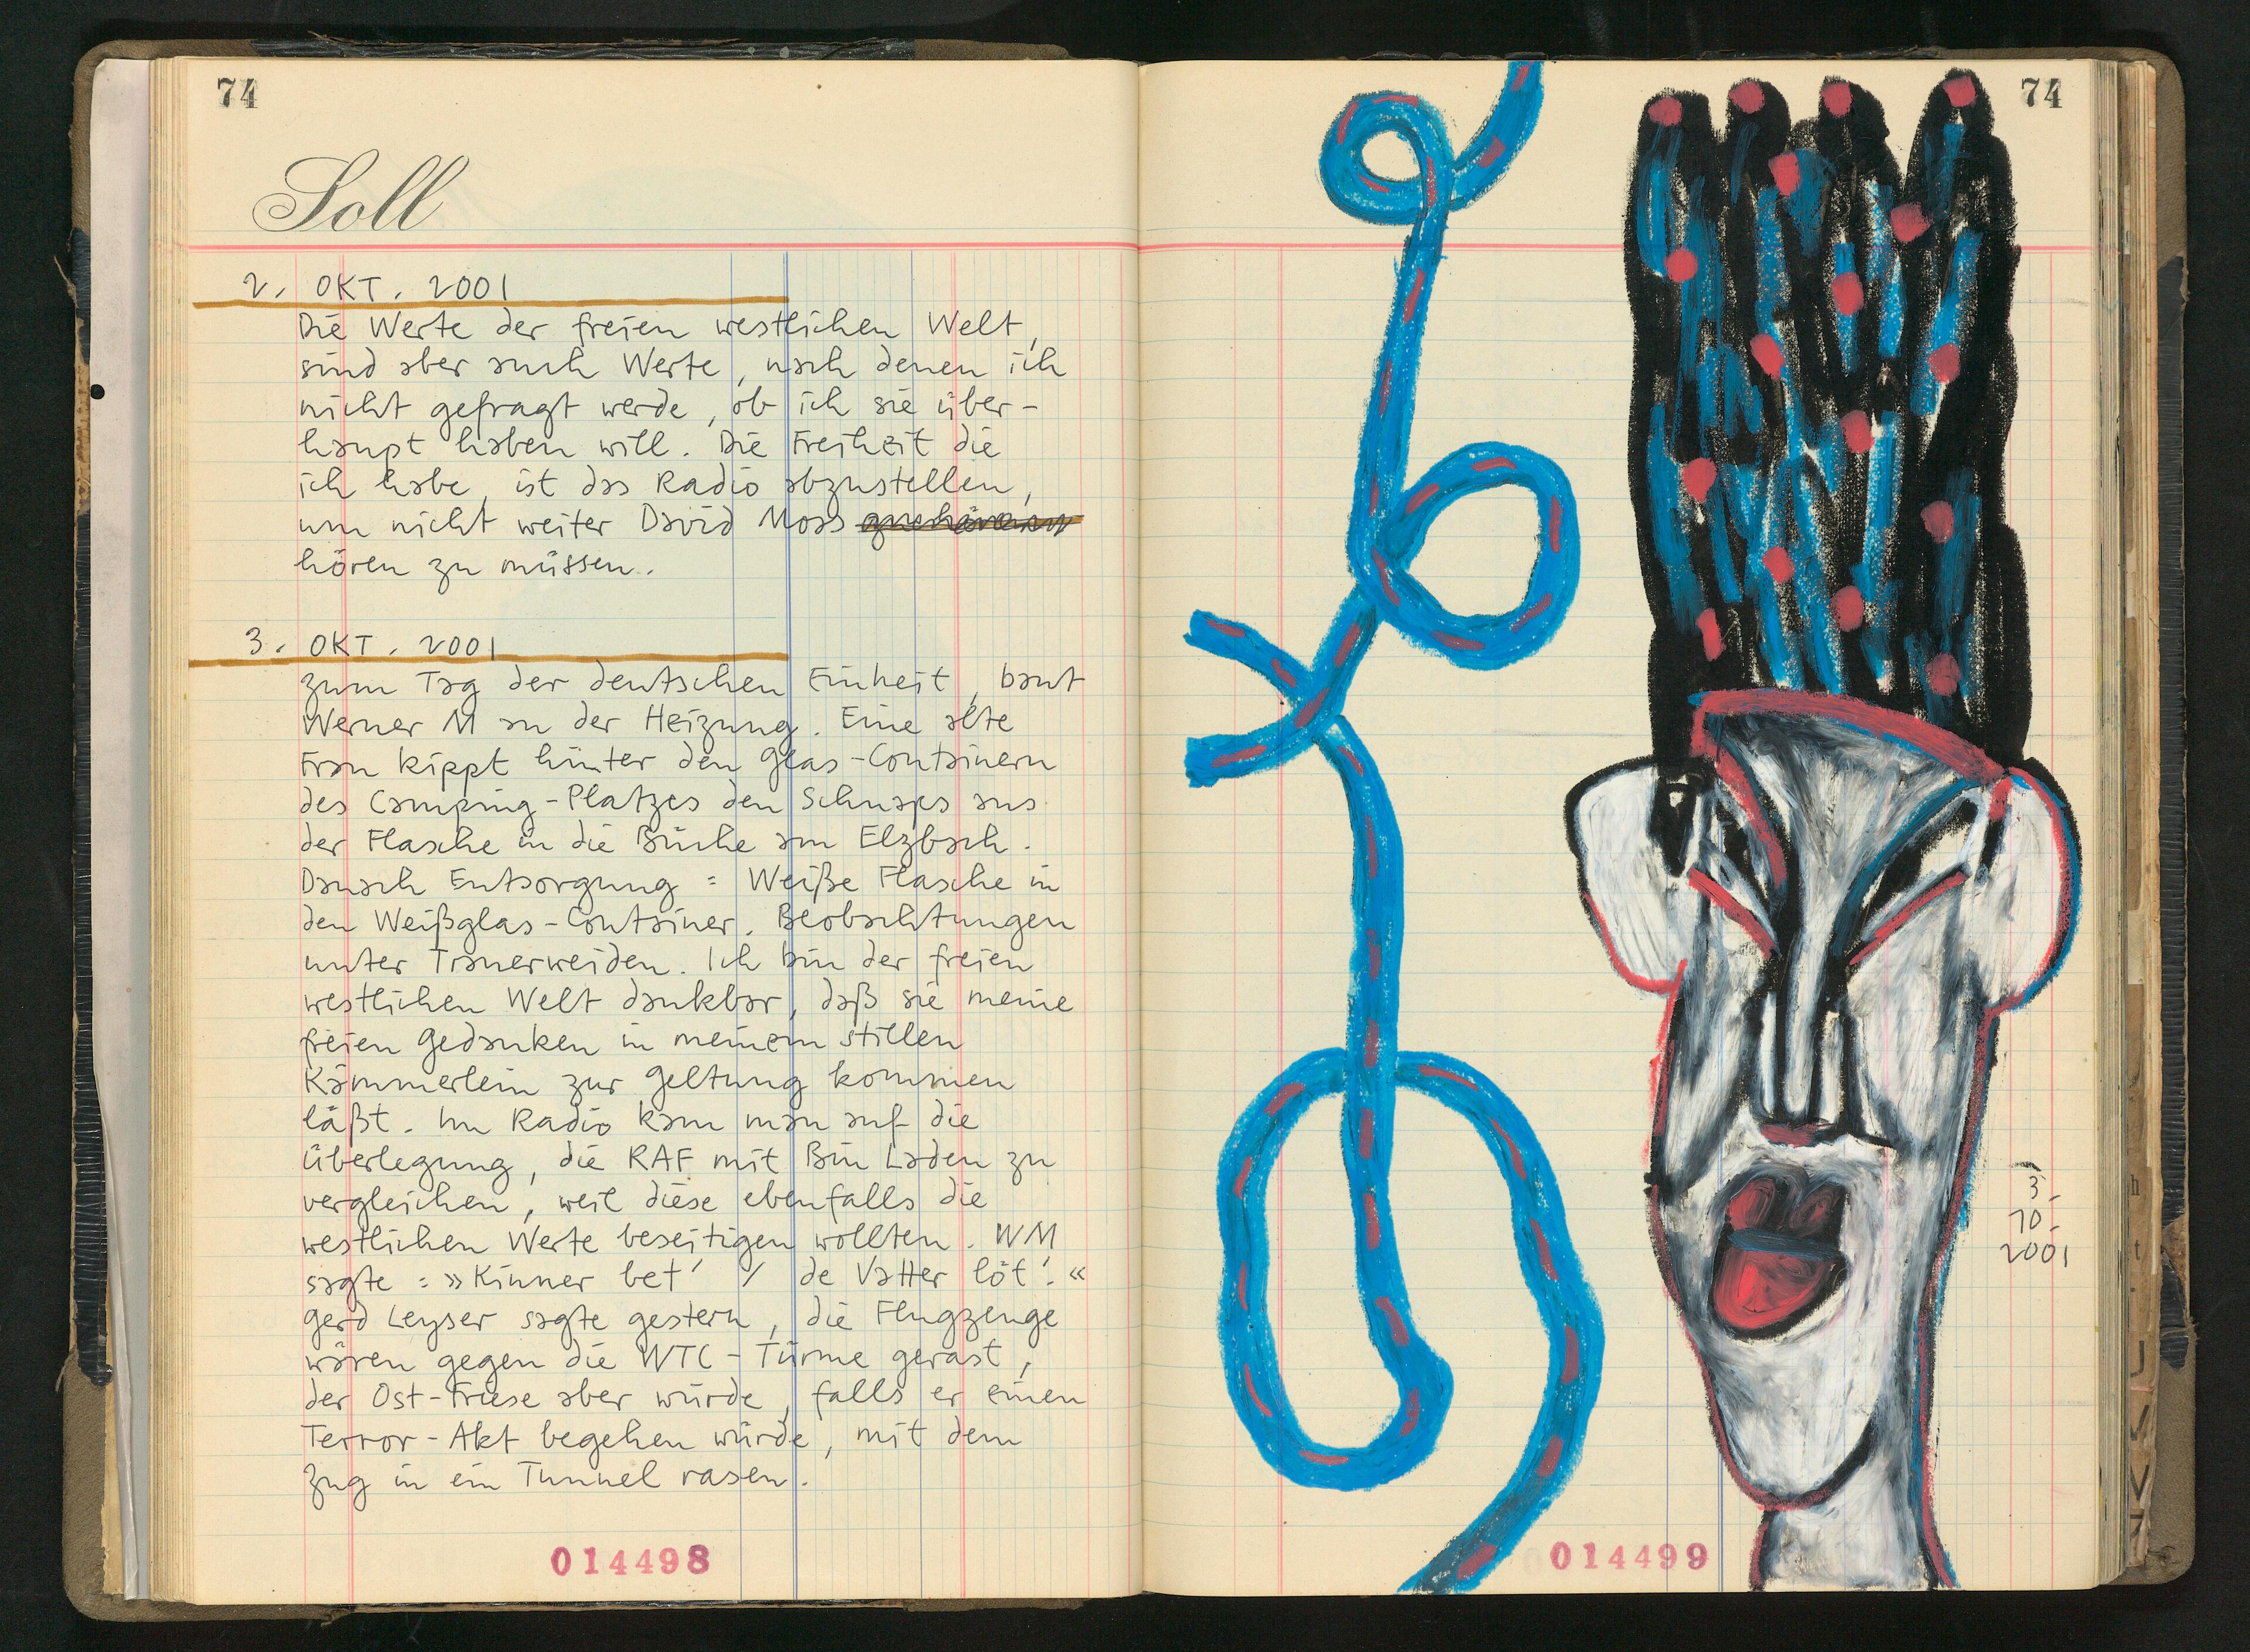 74
Soll
2. OKT. 2001
Die Werte der freien westlichen Welt,
sind aber auch Werte, nach denen ich
nicht gefragt werde, ob ich sie über-
haupt haben will. Die Freiheit die
ich habe, ist das Radio abzustellen,
um nicht weiter David Moss
hören zu müssen.
3. OKT. 2001
zum Tag der deutschen Einheit, baut
Werner M an der Heizung. Eine alte
Frau kippt hinter den Glas-Containern
des Camping-Platzes den Schnaps aus
der Flasche in die Büche am Elzbach.
Danach Entsorgung = Weiße Flasche in
den Weißglas-Container. Beobachtungen
unter Trauerweiden. Ich bin der freien
westlichen Welt dankbar, daß sie meine
freien Gedanken in meinem stillen
Kämmerlein zur Geltung kommen
läßt. Im Radio kam man auf die
Überlegung, die RAF mit Bin Laden zu
vergleichen, weil diese ebenfalls die
westlichen Werte beseitigen wollten. WM
sagte: »Kinner bet' / de Vatter löt'.«
Gerd Leyser sagte gestern, die Flugzeuge
wären gegen die WTC-Türme gerast,
der Ost-Friese aber würde, falls er einen
Terror-Akt begehen würde, mit dem
Zug in ein Tunnel rasen.
014498
74
3.
10.
2001
014499